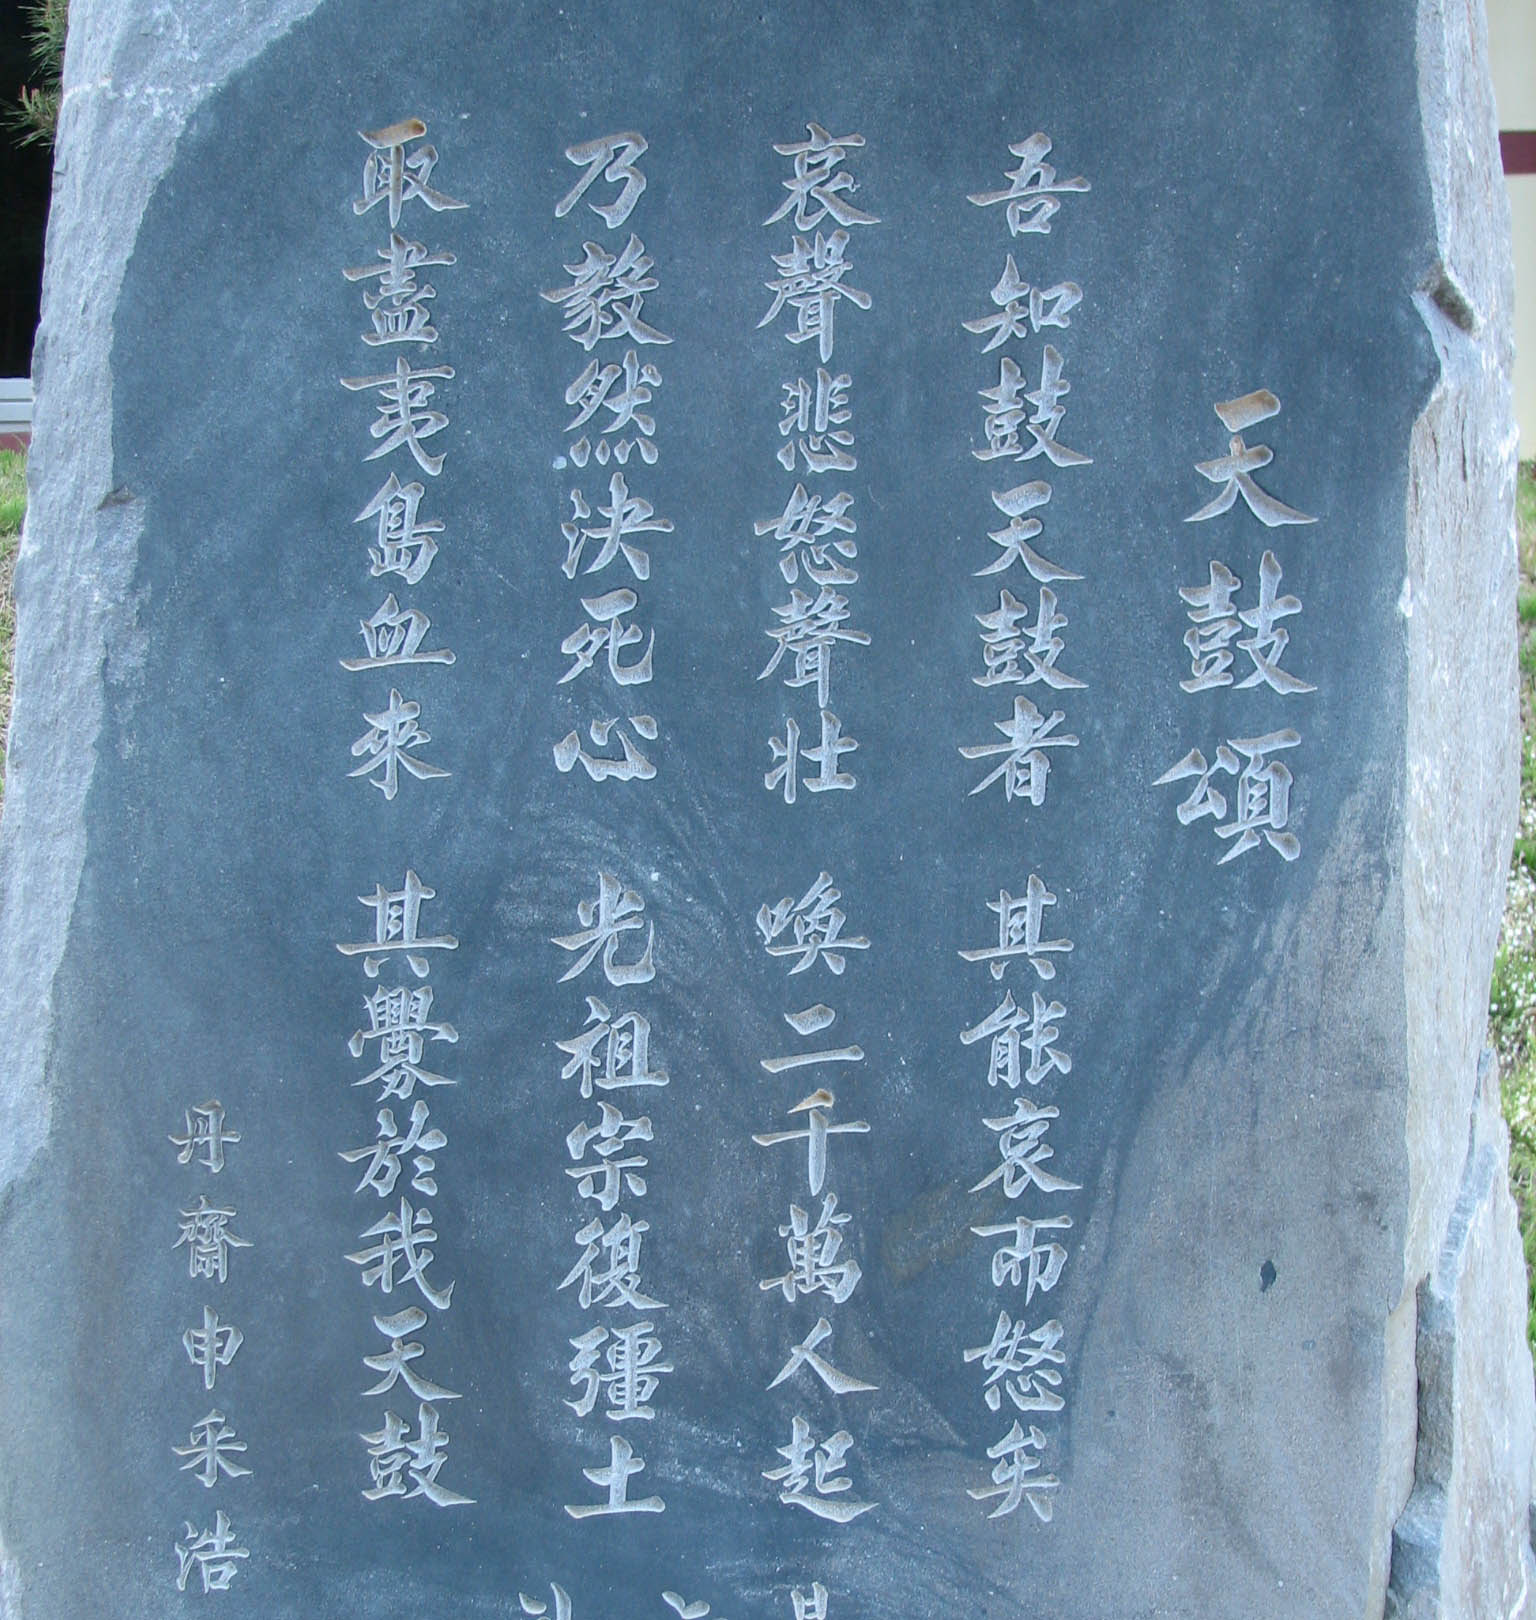 天鼓頌
吾知鼓天鼓者 其能哀而怒矣
哀聲悲怒聲壯 喚二千萬人起
乃毅然決死心 光祖宗復疆土
取盡夷島血來 其釁於我天鼓
丹齋申采浩